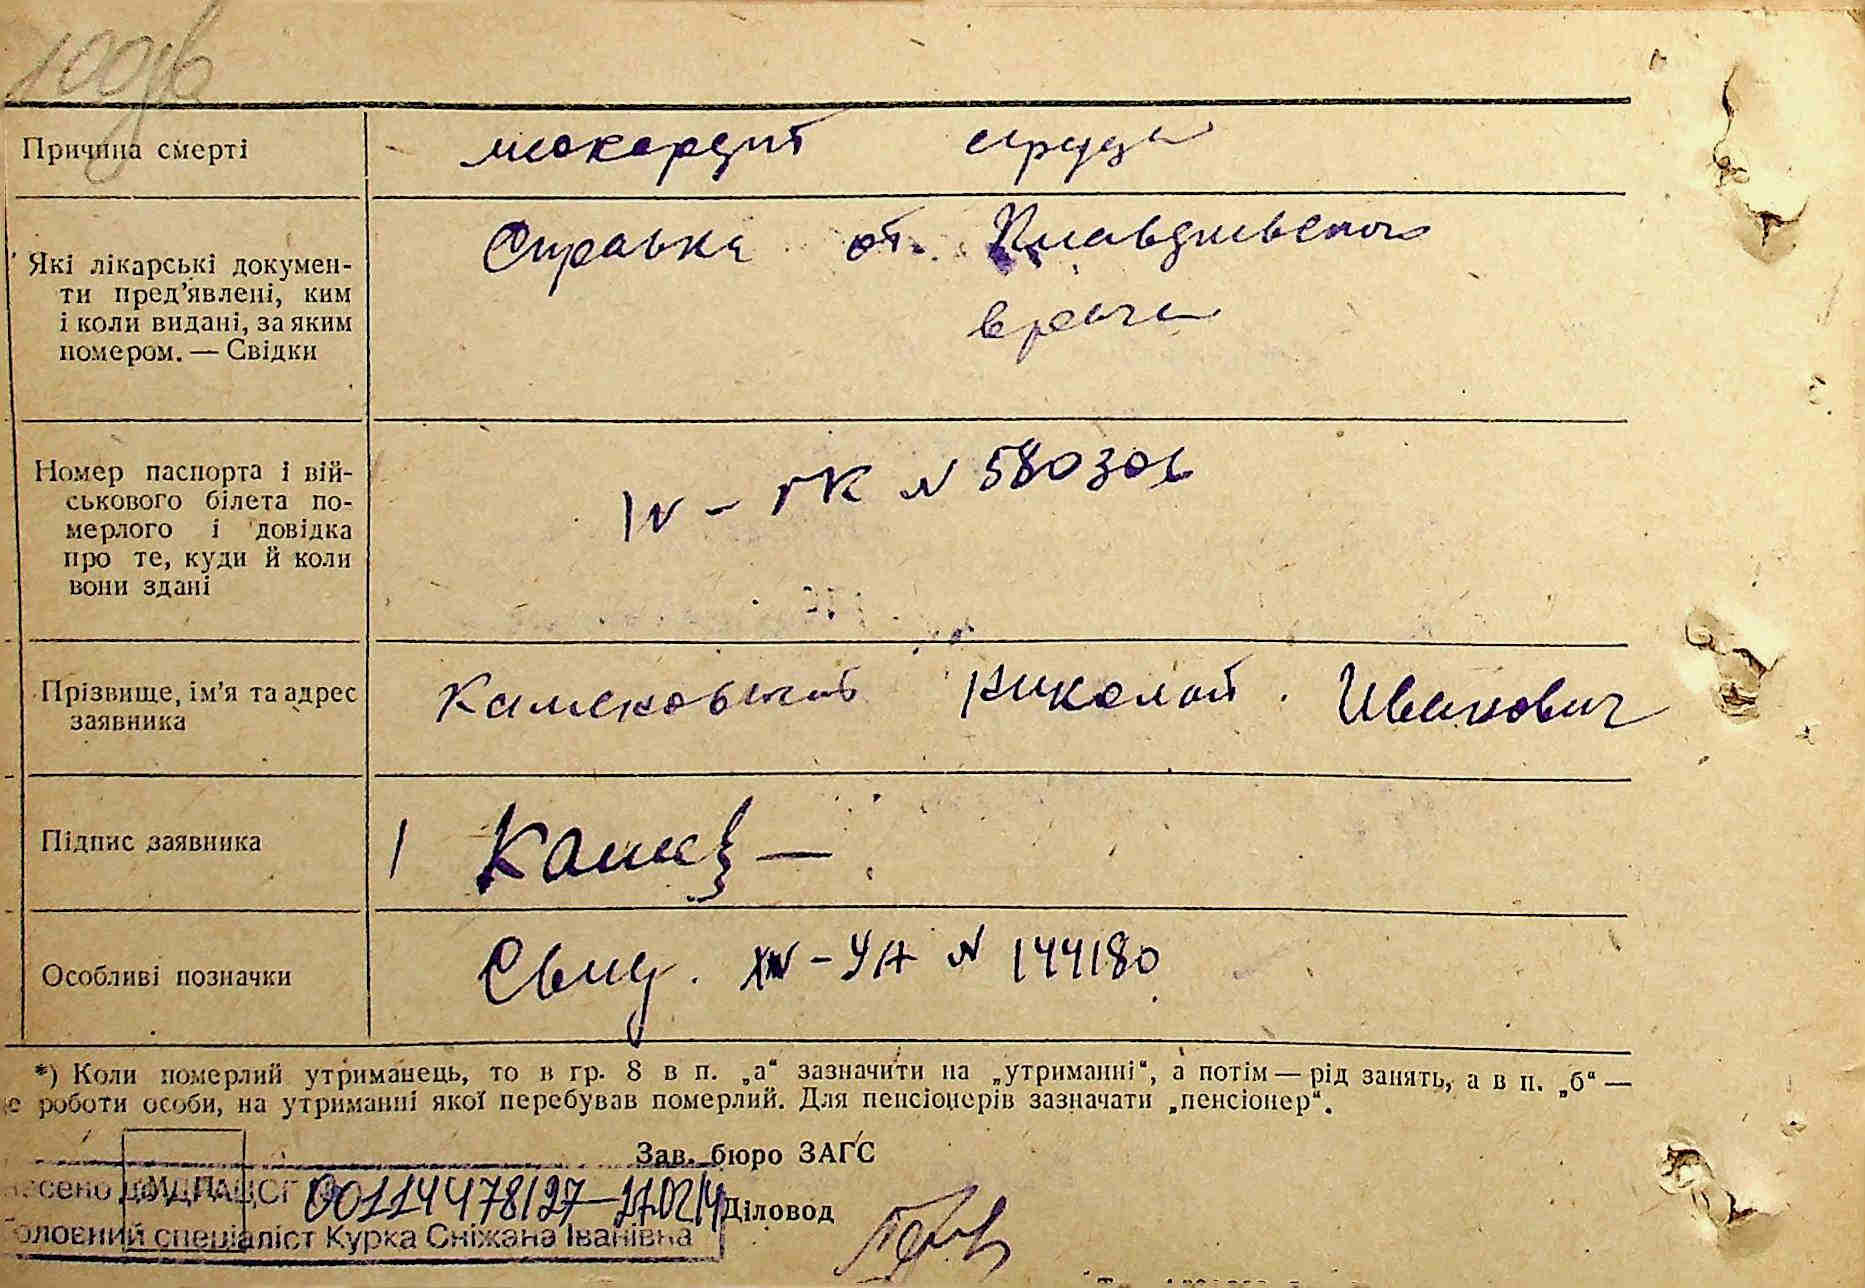 Причина смерті
миокардит сердца
Які лікарські докумен-
ти пред’явлені, ким
і коли видані, за яким
номером. — Свідки
Справка от Клавдиевского
врача
Номер паспорта і вій-
ськового білета по-
мерлого і довідка
про те, куди й коли
вони здані
IV – ГК N 580306
Прізвище, ім’я та адрес
заявника
Николай Иванович
Підпис заявника
Особливі позначки
N 144180
*) Коли померлий утриманець, то в гр. 8 в п. „а“ зазначити на „утриманні“, а потім — рід занять, а в п. „б“ —
роботи особи, на утриманні якої перебував померлий. Для пенсіонерів зазначати „пенсіонер“.
Зав. бюро ЗАГС
00114478127
Діловод
спеціаліст Курка Сніжана Іванівна